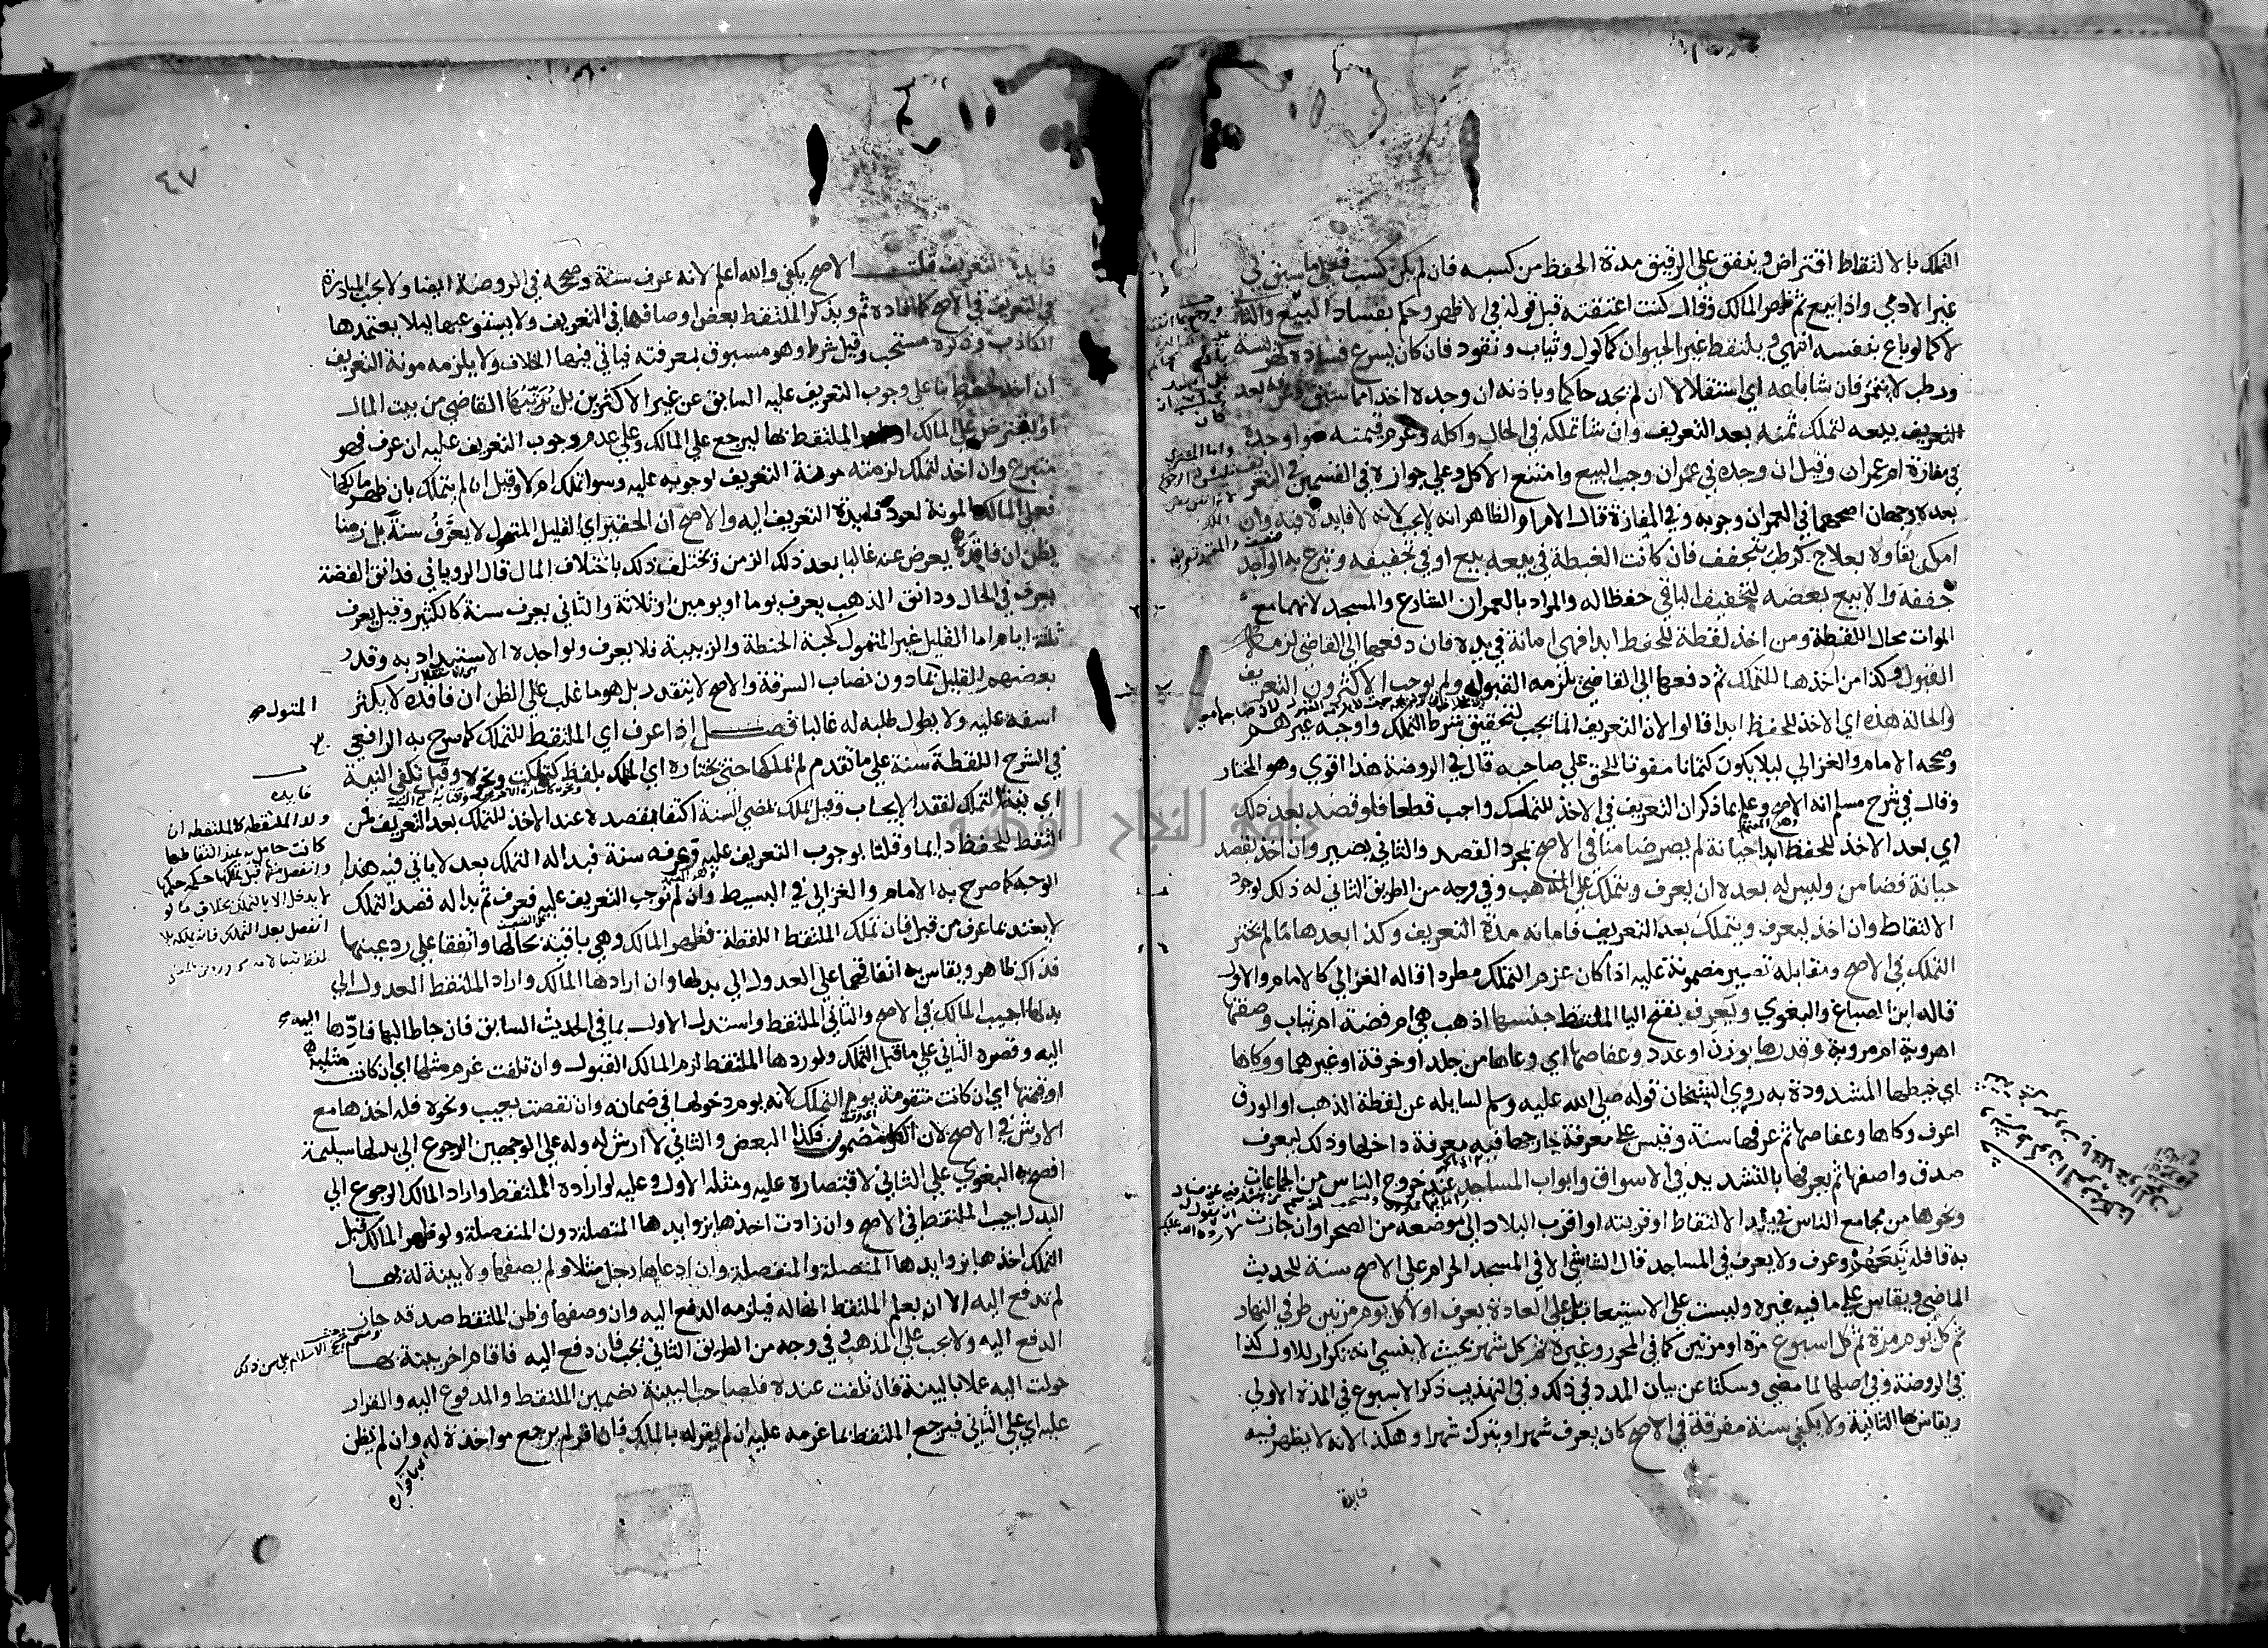 التملك بالالتقاط اقتراض وينفق على الرقيق مدة الحفظ من كسبه فان لم يكن كسب فعلى ما سبق في
غير الادمي واذا بيع ثم ظهر المالك وقال كنت اعتقته قبل قوله في الاظهر وحكم بفساد البيع والثاني
لا كما لو باع بنفسه انتهى ويلتقط غير الحيوان كماكول وثياب ونقود فان كان يسرع فساده كهريسة
ورطب لا يتتمر فان شا باعه اي استقلالا ان لم يجد حاكما وباذنه ان وجده اخذا مما سبق بعد
التعريف بيعه لتملك ثمنه بعد التعريف وان شا تملكه في الحال واكله وغرم قيمته سوا وجده
في مفازة ام عمران وقيل ان وجده في عمران وجب البيع وامتنع الاكل وعلى جوازه في القسمين في التعريف
بعده وجهان اصحهما في العمران وجوبه وفي المفازة قال الامام والظاهر انه لا يجب لانه لا فايدة فيه وان
امكن بقاوه بعلاج كرطب يتجفف فان كانت الغبطة في بيعه بيع او في تجفيفه وتبرع به الواجد
جففه والا بيع بعضه لتجفيف الباقي حفظا له والمراد بالعمران الشارع والمسجد لانهما مع
الموات محال اللقطة ومن اخذ لقطة للحفظ ابدا فهي امانة في يده فان دفعها الى القاضي لزمه
القبول وكذا من اخذها للتملك ثم دفعها الى القاضي يلزمه القبول ولم يوجب الاكثرون التعريف
والحالة هذه اي الاخذ للحفظ ابدا قالوا لان التعريف انما يجب لتحقيق شرط التملك واوجبه غيرهم
وصححه الامام والغزالي ليلا يكون كتمانا مفوتا للحق على صاحبه قال في الروضة هذا اقوى وهو المختار
وقال في شرح مسلم انه الاصح وعلم بما ذكر ان التعريف في الاخذ للتملك واجب قطعا فلو قصد بعد ذلك
اي بعد الاخذ للحفظ ابدا خيانة لم يصر ضامنا في الاصح بمجرد القصد والثاني يصير وان اخذ بقصد
خيانة فضامن وليس له بعده ان يعرف ويتملك على المذهب وفي وجه من الطريق الثاني له ذلك لوجود
الالتقاط وان اخذ ليعرف ويتملك بعد التعريف فامانه مدة التعريف وكذا بعدها ما لم يختر
التملك في الاصح ومقابله تصير مضمونة عليه اذا كان عزم التملك مطردا قاله الغزالي كالامام والاول
قاله ابن الصباغ والبغوي ويعرف بفتح اليا الملتقط جنسها اذهب هي ام فضة ام ثياب وصفتها
اهروية ام مروية وقدرها بوزن او عدد وعفاصها اي وعاها من جلد او خرقة او غيرهما ووكاها
اي خيطها المشدودة به روى الشيخان قوله صلى الله عليه وسلم لسايله عن لقطة الذهب او الورق
اعرف وكاها وعفاصها ثم عرفها سنة وقيس على معرفة خارجها فيه معرفة داخلها وذلك ليعرف
صدق واصفها ثم يعرفها بالتشديد في الاسواق وابواب المساجد عند خروج الناس من الجماعات
ونحوها من مجامع الناس في بلد الالتقاط او قريته او اقرب البلاد الى موضعه من الصحرا وان جازت
به قافلة تبعها وعرف ولا يعرف في المساجد قال الشاشي الا في المسجد الحرام على الاصح سنة للحديث
الماضي ويقاس على ما فيه غيره وليست على الاستيعاب بل على العادة يعرف اولا كل يوم مرتين طرفي النهار
ثم كل يوم مرة ثم كل اسبوع مرة او مرتين كما في المحرر وغيره ثم كل شهر بحيث لا ينسى انه تكرار للاول كذا
في الروضة وفي اصلها لما مضى وسكتا عن بيان المدد في ذلك وفي التهذيب ذكر الاسبوع في المدة الاولى
ويقاس بها الثانية ولا يكفي سنة مفرقة في الاصح كان يعرف شهرا ويترك شهرا وهكذا لانه لا يظهر فيه
فايدة
٤٧
فايدة التعريف قلت الاصح يكفي والله اعلم لانه عرف سنة وصححه في الروضة ايضا ولا يجب المبادرة
في التعريف في الاصح كما افاده ثم ويذكر الملتقط بعض اوصافها في التعريف ولا يستوعبها ليلا يعتمدها
الكاذب وذكره مستحب وقيل شرط وهو مسبوق بمعرفته فياتي فيها الخلاف ولا يلزمه مونة التعريف
ان اخذ لحفظ بنا على وجوب التعريف عليه السابق عن غير الاكثرين بل يرتبها القاضي من بيت المال
او يقترض على المالك او يامر الملتقط بها ليرجع على المالك وعلى عدم وجوب التعريف عليه ان عرف فهو
متبرع وان اخذ لتملك لزمته مونة التعريف لوجوبه عليه وسوا تملك ام لا وقيل ان لم يتملك بان ظهر مالكها
فعلى المالك المونة لعود فايدة التعريف اليه والاصح ان الحقير اي القليل المتمول لا يعرف سنة بل زمنا
يظن ان فاقده يعرض عنه غالبا بعد ذلك الزمن وتختلف ذلك باختلاف المال قال الروياني فدانق الفضة
يعرف في الحال ودانق الذهب يعرف يوما او يومين او ثلاثة والثاني يعرف سنة كالكثير وقيل يعرف
ثلثة ايام اما القليل غير المتمول كحبة الحنطة والزبيبة فلا يعرف ولواجده الاستبداد به وقدر
بعضهم القليل بما دون نصاب السرقة والاصح لا يتقدر بل هو ما غلب على الظن ان فاقده لا يكثر
اسفه عليه ولا يطول طلبه له غالبا فصل اذا عرف اي الملتقط للتملك كما صرح به الرافعي
في الشرح اللقطة سنة على ما تقدم لم تملكها حتى يختاره اي التملك بلفظ كتملكت ونحوه وقيل تكفي النية
اي نية التملك لفقد الايجاب وقيل تملك بمضي السنة اكتفا بقصده عند الاخذ للتملك بعد التعريف فمن
التقط للحفظ دايما وقلنا بوجوب التعريف عليه وعرفه سنة فبدا له التملك بعد لا ياتي فيه هذا
الوجه كما صرح به الامام والغزالي في البسيط وان لم نوجب التعريف عليه فعرف ثم بدا له قصد التملك
لا يعتد بما عرف من قبل فان تملك الملتقط اللقطة فظهر المالك وهي باقية بحالها واتفقا على رد عينها
فذاك ظاهر ويقاس به اتفاقهما على العدول الى بدلها وان ارادها المالك واراد الملتقط العدول الى
بدلها اجيب المالك في الاصح والثاني الملتقط واستدل الاول بما في الحديث السابق فان جا طالبها فادها
اليه وقصره الثاني على ما قبل التملك ولو ردها الملتقط لزم المالك القبول وان تلفت غرم مثلها اي ان كانت مثلية
او قيمتها اي ان كانت متقومة يوم التملك لانه يوم دخولها في ضمانه وان نقصت بعيب ونحوه فله اخذها مع
الارش في الاصح لان الكل مضمون فكذا البعض والثاني لا ارش له وله على الوجهين الرجوع الى بدلها سليمة
افصح به البغوي على الثاني لاقتصاره عليه ومثله الاول وعليه لو اراده الملتقط واراد المالك الرجوع الى
البدل اجيب الملتقط في الاصح وان زادت اخذها بزوايدها المتصلة دون المنفصلة ولو ظهر المالك قبل
التملك اخذها بزوايدها المتصلة والمنفصلة وان ادعاها رجل مثلا ولم يصفها ولا بينة له بها
لم تدفع اليه الا ان يعلم الملتقط انها له فيلزمه الدفع اليه وان وصفها وظن الملتقط صدقه جاز
الدفع اليه ولا يجب على المذهب وفي وجه من الطريق الثاني يجب فان دفع اليه فاقام اخر بينة بها
حولت اليه عملا بالبينة فان تلفت عنده فلصاحب البينة تضمين الملتقط والمدفوع اليه والقرار
عليه اي على الثاني فيرجع الملتقط بما غرمه عليه ان لم يقر له بالملك فان اقر لم يرجع مواخذة له وان لم يظن
المتمول
فايده
ولد الملتقطة كالملتقطة ان
كانت حاملا به عند التقاطها